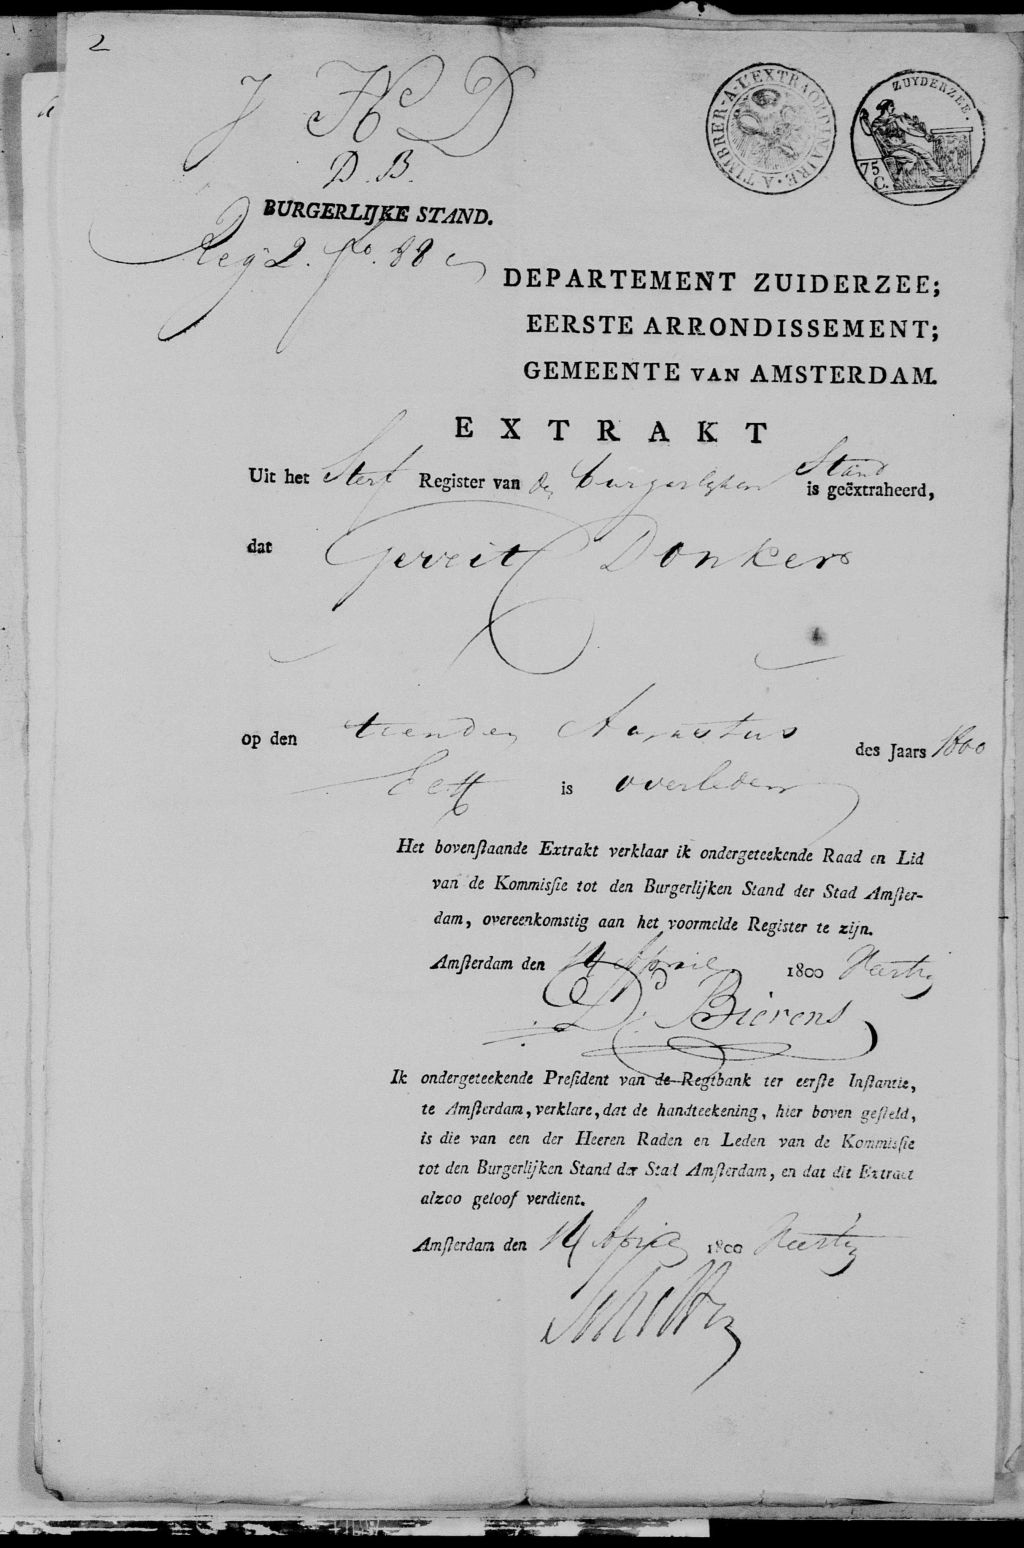 2
J H D
D. B.
BURGERLIJKE STAND.
Reg 2. fo. 88
A TIMBRER-A-L'EXTRAORDINAIRE.
ZUYDERZEE.
75 C.
DEPARTEMENT ZUIDERZEE;
EERSTE ARRONDISSEMENT;
GEMEENTE VAN AMSTERDAM.
EXTRAKT
Uit het Sterf Register van den burgerlyken Stand is geëxtraheerd,
dat Gerrit Donker
op den tienden Augustus des Jaars 1800
Elf is overleden
Het bovenstaande Extrakt verklaar ik ondergeteekende Raad en Lid
van de Kommissie tot den Burgerlijken Stand der Stad Amster-
dam, overeenkomstig aan het voormelde Register te zijn.
Amsterdam den 14 April 1800 Veertig
D. Bierens
Ik ondergeteekende President van de Regtbank ter eerste Instantie,
te Amsterdam, verklare, dat de handteekening, hier boven gesteld,
is die van een der Heeren Raden en Leden van de Kommissie
tot den Burgerlijken Stand der Stad Amsterdam, en dat dit Extract
alzoo geloof verdient.
Amsterdam den 14 April 1800